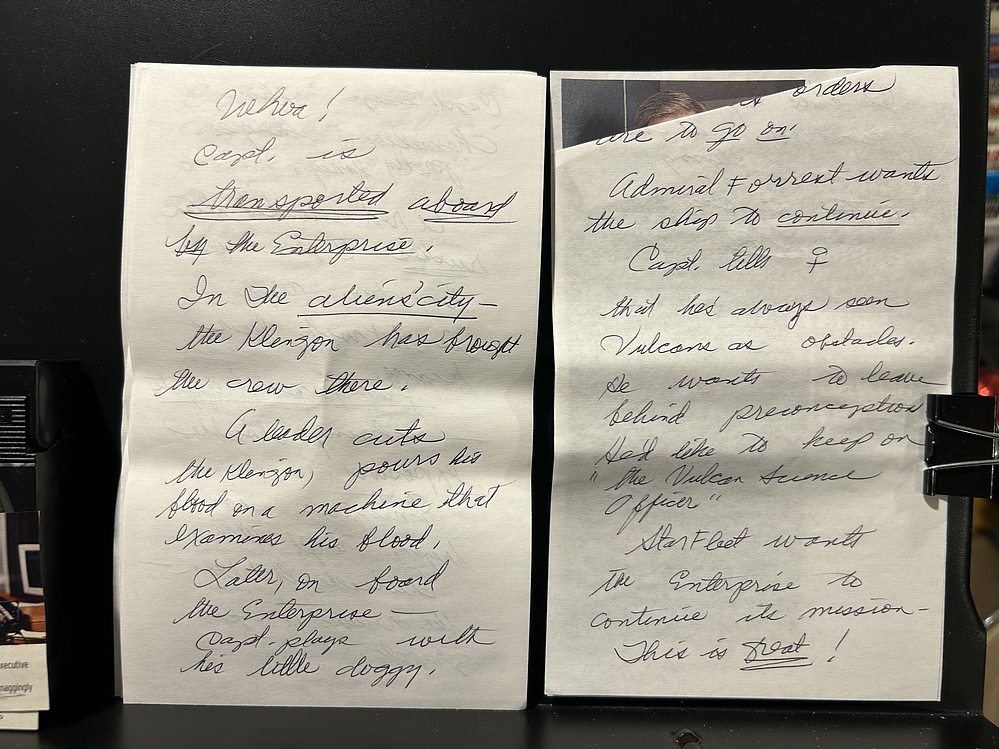 Whew!
Capt. is
transported aboard
by the Enterprise.
In the aliens' city—
the Klengon has brought
the crew there.
A leader cuts
the Klengon, pours his
blood on a machine that
examines his blood.
Later, on board
the Enterprise —
Capt plays with
his little doggy.
orders
are to go on.
Admiral Forrest wants
the ship to continue.
Capt. tells ♀
that he's always seen
Vulcans as obstacles.
He wants to leave
behind preconception
He'd like to keep on
"the Vulcan Science
Officer"
StarFleet wants
the Enterprise to
continue its mission—
This is great!
xecutive
naggingly